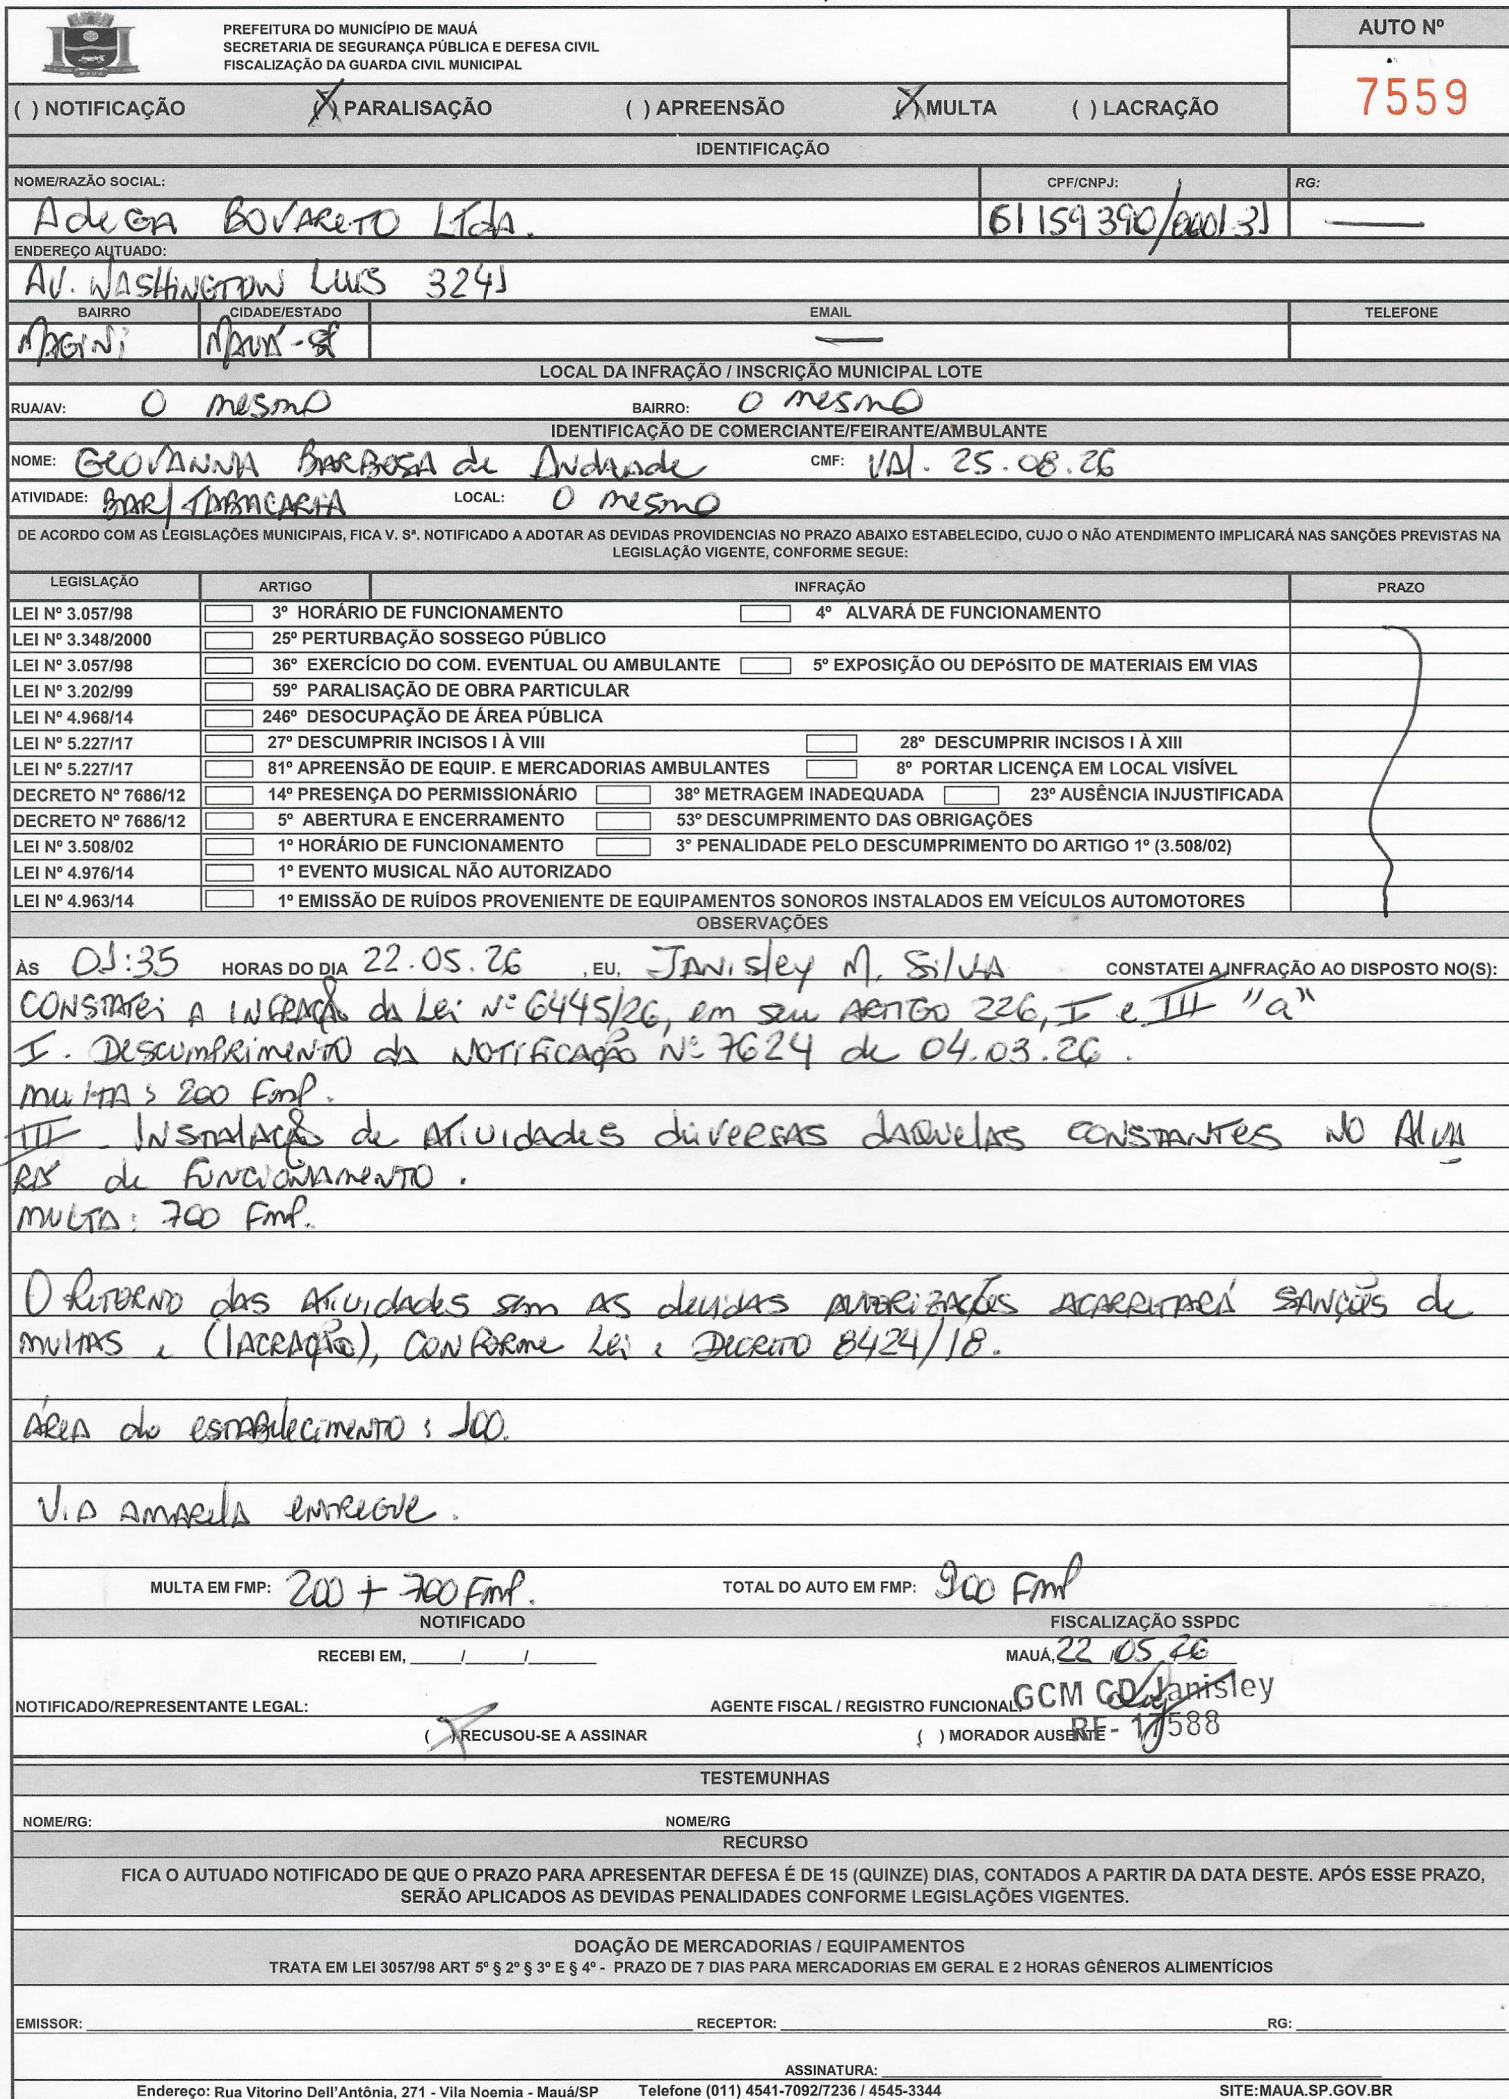 PREFEITURA DO MUNICÍPIO DE MAUÁ
SECRETARIA DE SEGURANÇA PÚBLICA E DEFESA CIVIL
FISCALIZAÇÃO DA GUARDA CIVIL MUNICIPAL
AUTO Nº
7559
( ) NOTIFICAÇÃO (X) PARALISAÇÃO ( ) APREENSÃO (X) MULTA ( ) LACRAÇÃO
IDENTIFICAÇÃO
NOME/RAZÃO SOCIAL: CPF/CNPJ: RG:
Adega BOVARETO LTda. 61 159 390/0001-31 —
ENDEREÇO AUTUADO:
AV. WASHINGTON LUIS 3241
BAIRRO CIDADE/ESTADO EMAIL TELEFONE
MAGINI MAUÁ-SP —
LOCAL DA INFRAÇÃO / INSCRIÇÃO MUNICIPAL LOTE
RUA/AV: O mesmo BAIRRO: O mesmo
IDENTIFICAÇÃO DE COMERCIANTE/FEIRANTE/AMBULANTE
NOME: GEOVANNA BARBOSA de Andrade CMF: VAL. 25.08.26
ATIVIDADE: BAR/TABACARIA LOCAL: O mesmo
DE ACORDO COM AS LEGISLAÇÕES MUNICIPAIS, FICA V. Sª. NOTIFICADO A ADOTAR AS DEVIDAS PROVIDENCIAS NO PRAZO ABAIXO ESTABELECIDO, CUJO O NÃO ATENDIMENTO IMPLICARÁ NAS SANÇÕES PREVISTAS NA
LEGISLAÇÃO VIGENTE, CONFORME SEGUE:
LEGISLAÇÃO ARTIGO INFRAÇÃO PRAZO
LEI Nº 3.057/98 3º HORÁRIO DE FUNCIONAMENTO 4º ALVARÁ DE FUNCIONAMENTO
LEI Nº 3.348/2000 25º PERTURBAÇÃO SOSSEGO PÚBLICO
LEI Nº 3.057/98 36º EXERCÍCIO DO COM. EVENTUAL OU AMBULANTE 5º EXPOSIÇÃO OU DEPóSITO DE MATERIAIS EM VIAS
LEI Nº 3.202/99 59º PARALISAÇÃO DE OBRA PARTICULAR
LEI Nº 4.968/14 246º DESOCUPAÇÃO DE ÁREA PÚBLICA
LEI Nº 5.227/17 27º DESCUMPRIR INCISOS I À VIII 28º DESCUMPRIR INCISOS I À XIII
LEI Nº 5.227/17 81º APREENSÃO DE EQUIP. E MERCADORIAS AMBULANTES 8º PORTAR LICENÇA EM LOCAL VISÍVEL
DECRETO Nº 7686/12 14º PRESENÇA DO PERMISSIONÁRIO 38º METRAGEM INADEQUADA 23º AUSÊNCIA INJUSTIFICADA
DECRETO Nº 7686/12 5º ABERTURA E ENCERRAMENTO 53º DESCUMPRIMENTO DAS OBRIGAÇÕES
LEI Nº 3.508/02 1º HORÁRIO DE FUNCIONAMENTO 3° PENALIDADE PELO DESCUMPRIMENTO DO ARTIGO 1º (3.508/02)
LEI Nº 4.976/14 1º EVENTO MUSICAL NÃO AUTORIZADO
LEI Nº 4.963/14 1º EMISSÃO DE RUÍDOS PROVENIENTE DE EQUIPAMENTOS SONOROS INSTALADOS EM VEÍCULOS AUTOMOTORES
OBSERVAÇÕES
ÀS 01:35 HORAS DO DIA 22.05.26 , EU, JANISLEY M. SILVA CONSTATEI A INFRAÇÃO AO DISPOSTO NO(S):
CONSTATEI A INFRAÇÃO da Lei Nº 6445/26, em seu ARTIGO 226, I e III "a"
I. DESCUMPRIMENTO da NOTIFICAÇÃO Nº 7624 de 04.03.26.
MULTA: 200 FMP.
III - INSTALAÇÃO de ATIVIDADES diVERSAS DAQUELAS CONSTANTES NO ALVA
RÁ de FUNCIONAMENTO.
MULTA: 700 FMP.
O RETORNO das ATIVIdAdES SEM AS deVIDAS AUTORIZAÇÕES ACARRETARÁ SANÇÕES de
MULTAS e (LACRAÇÃO), CONFORME Lei e DECRETO 8424/18.
ÁREA do ESTABELECIMENTO: 100.
VIA AMARELA ENTREGUE.
MULTA EM FMP: 200 + 700 FMP. TOTAL DO AUTO EM FMP: 900 FMP
NOTIFICADO FISCALIZAÇÃO SSPDC
RECEBI EM, ____/____/____ MAUÁ, 22/05/26
NOTIFICADO/REPRESENTANTE LEGAL: AGENTE FISCAL / REGISTRO FUNCIONAL: GCM CD Janisley
RF- 17588
(X) RECUSOU-SE A ASSINAR ( ) MORADOR AUSENTE
TESTEMUNHAS
NOME/RG: NOME/RG
RECURSO
FICA O AUTUADO NOTIFICADO DE QUE O PRAZO PARA APRESENTAR DEFESA É DE 15 (QUINZE) DIAS, CONTADOS A PARTIR DA DATA DESTE. APÓS ESSE PRAZO,
SERÃO APLICADOS AS DEVIDAS PENALIDADES CONFORME LEGISLAÇÕES VIGENTES.
DOAÇÃO DE MERCADORIAS / EQUIPAMENTOS
TRATA EM LEI 3057/98 ART 5º § 2º § 3º E § 4º - PRAZO DE 7 DIAS PARA MERCADORIAS EM GERAL E 2 HORAS GÊNEROS ALIMENTÍCIOS
EMISSOR: RECEPTOR: RG:
ASSINATURA:
Endereço: Rua Vitorino Dell'Antônia, 271 - Vila Noemia - Mauá/SP Telefone (011) 4541-7092/7236 / 4545-3344 SITE:MAUA.SP.GOV.BR